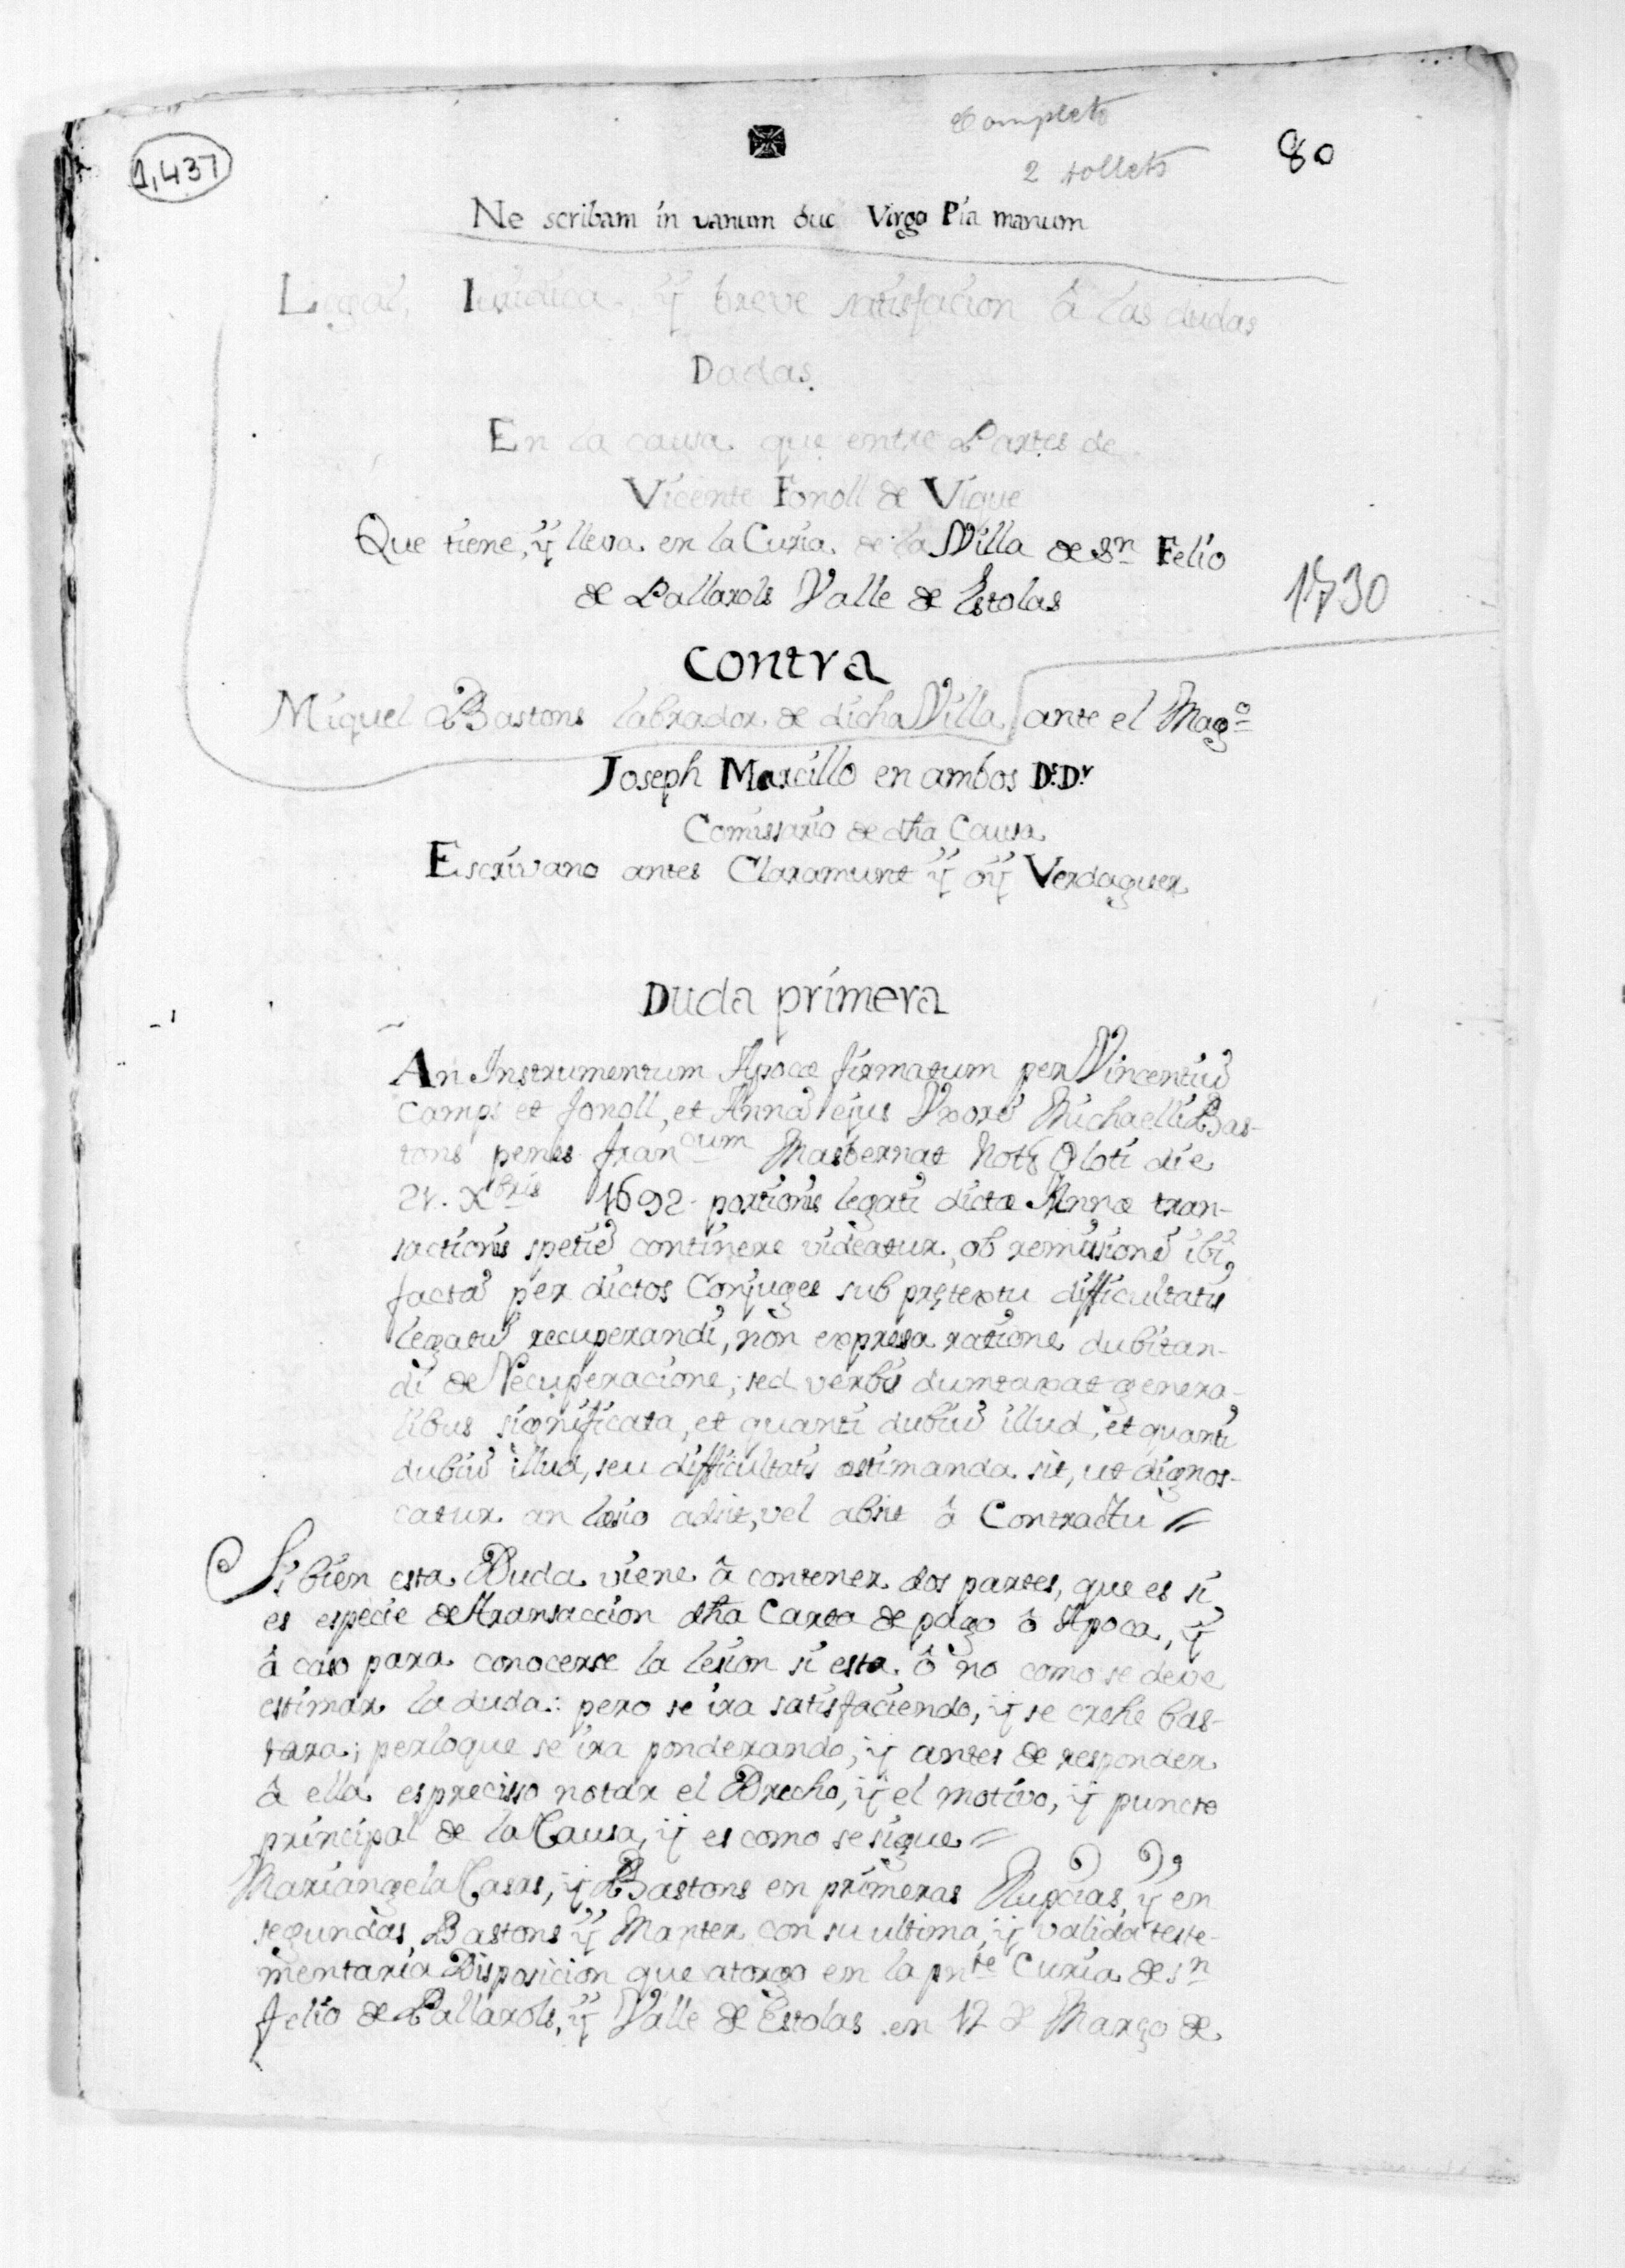 Complets
2 follets
80
1,437
Ne scribam in vanum duc Virgo Pia manum
Legal, Iuridica, y breve satisfacion â las dudas
Dadas.
En la causa que entre Partes de
Vicente Fonoll de Vique
Que tiene, y lleva en la Curia de la Villa de Sn Felio
de Pallarols Valle de Estolas
1730
Contra
Miquel Bastons labrador de dicha Villa ante el Mago
Joseph Marcillo en ambos Dr. Dr
Comissario de dha Causa
Escrivano antes Claramunt y oy Verdaguer
Duda primera
An Instrumentum Apocæ firmatum per Vincentiũ
Camps et fonoll, et Annã ejus Vxorẽ Michaelli Bas-
tons penes francum Masbernat Nots Oloti die
Xbris 1692. portionis legati dictæ Annæ tran-
sactionis spetiẽ continere videatur, ob remisionẽ ibi
factã per dictos Conjuges sub prętextu difficultatis
legatũ recuperandi, non expresa ratione dubitan-
di de Recuperacione; sed verbis dumtaxat genera-
libus significata, et quanti dubiũ illud, et quanti
dubiũ illud, seu difficultatis æstimanda sit, ut dignos-
catur an læsio adsit, vel absit â Contractu //
Si bien esta Duda viene â contener dos partes, que es si
es especie de transaccion dha Carta de pago ô Apoca, y
â caso para conocerse la lesion si esta ô no como se deve
estimar la duda: pero se ira satisfaciendo, y se crehe bas-
tara; perloque se ira ponderando, y antes de responder
â ella es precisso notar el Drecho, y el motivo, y puncto
principal de la Causa, y es como se sigue //
Mariangela Casas, y Bastons en primeras Nupcias, y en
segundas Bastons y Marter con su ultima, y valida teste-
mentaria Disposicion que atorgo en la pnte Curia de sn
felio de Pallarols, y Valle de Estolas en 12 de Março de